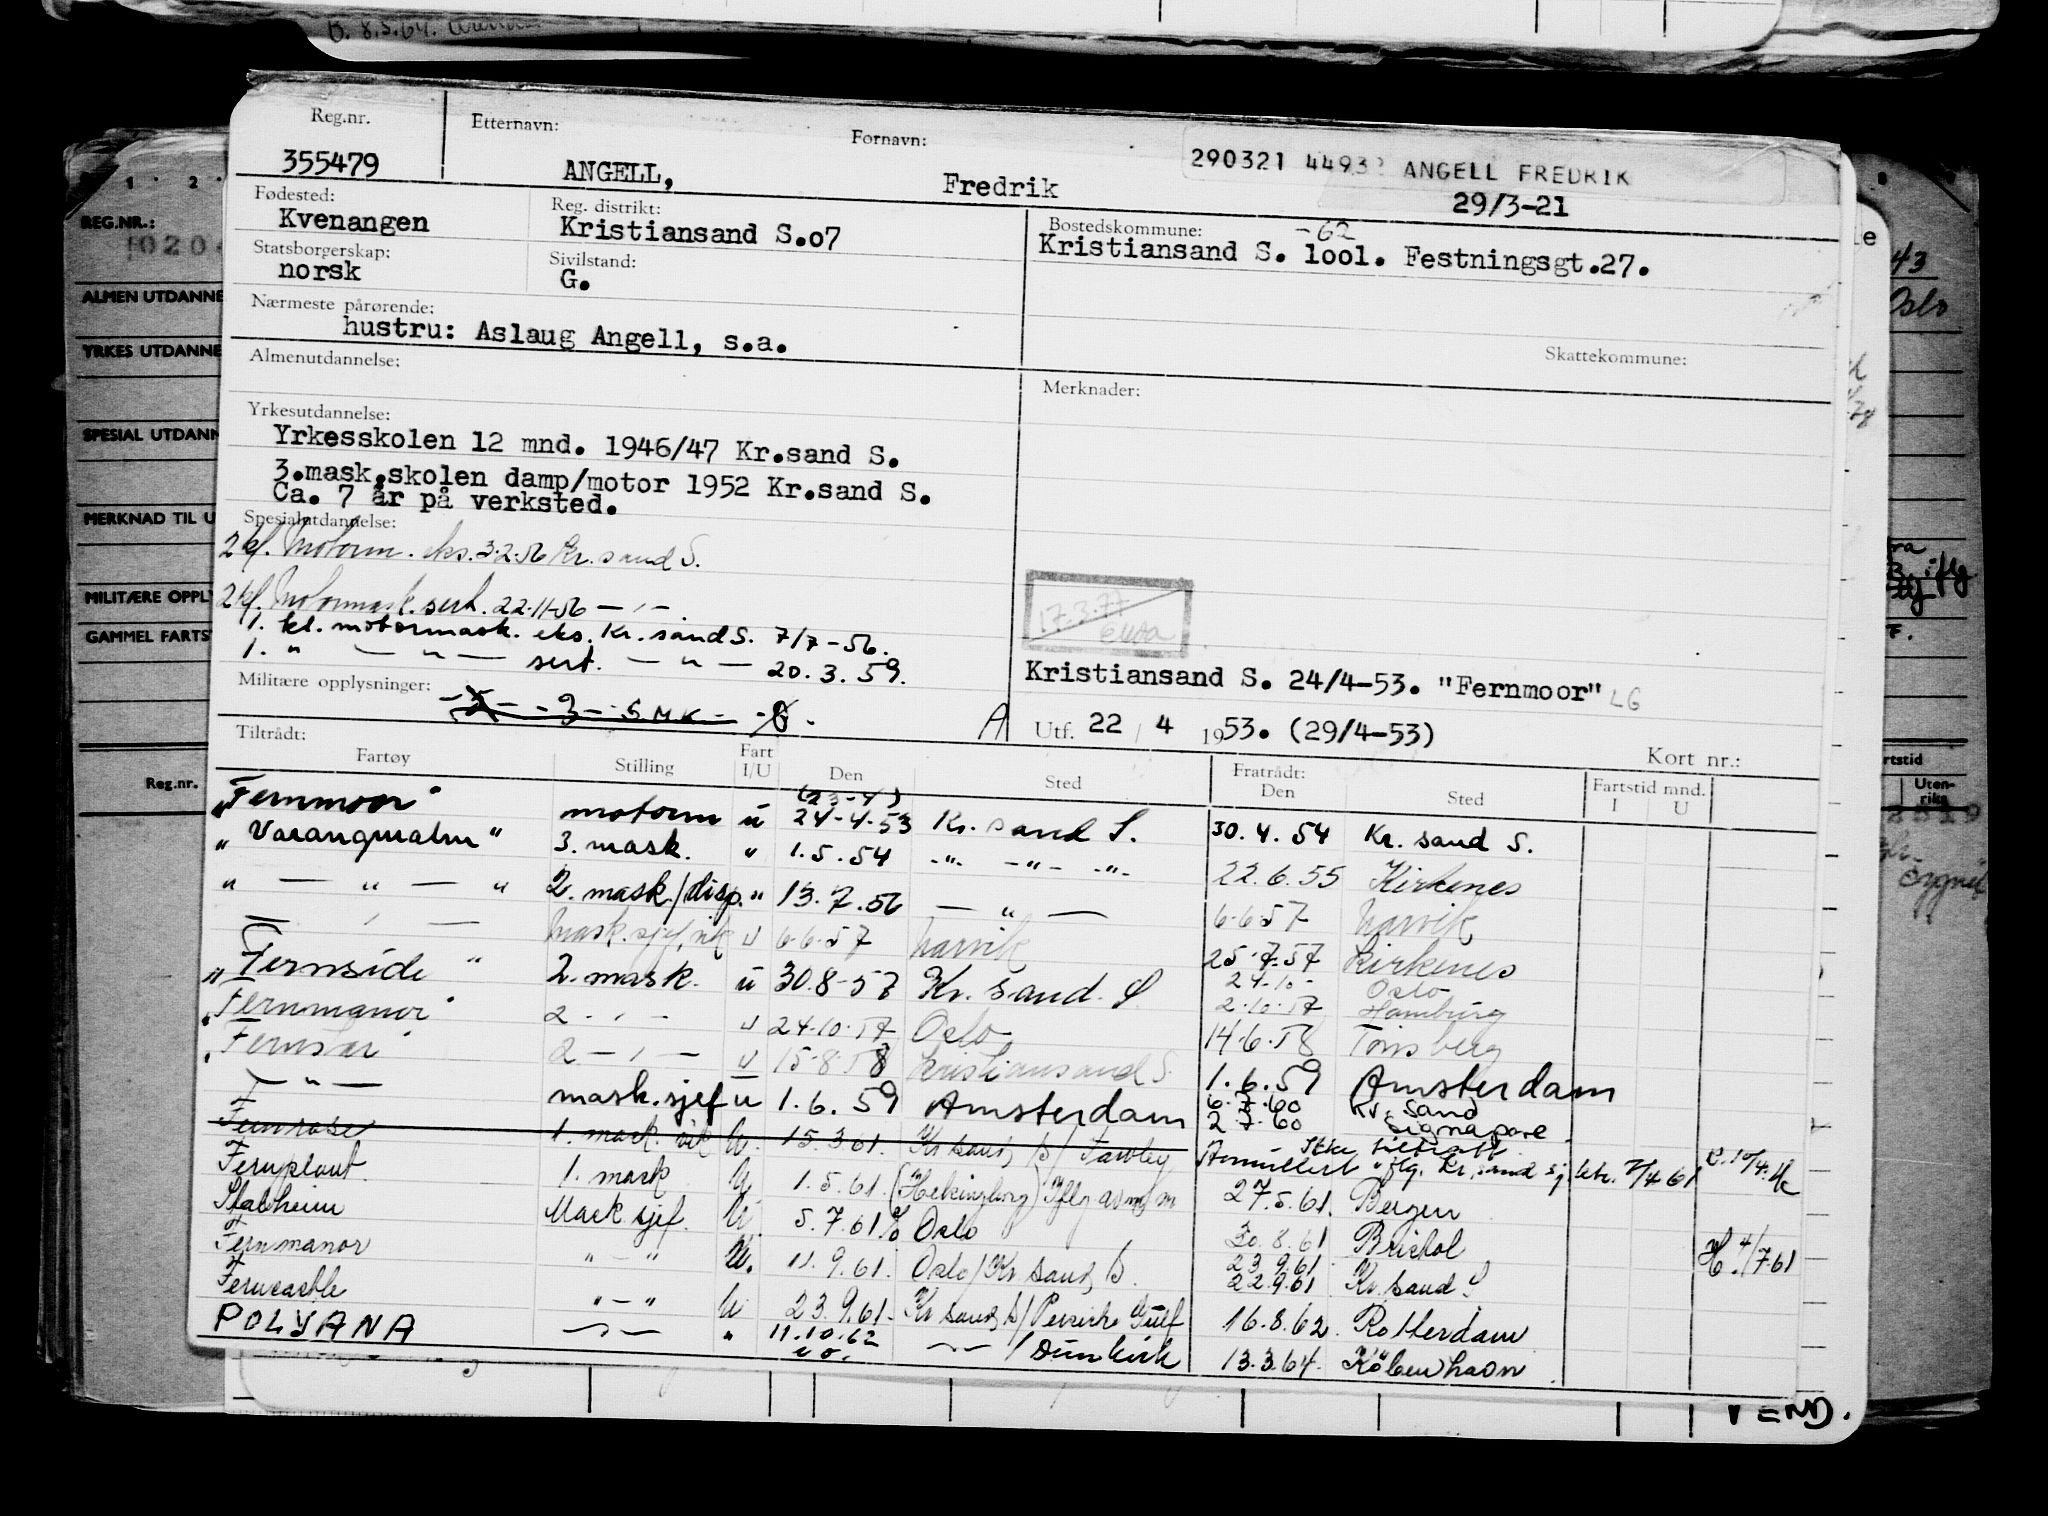 B. 8.5.64.
Reg.nr. Etternavn: Fornavn:
355479 ANGELL, Fredrik
290321 4493 ANGELL FREDRIK
29/3-21
Fødested: Reg. distrikt: Bostedskommune: -62
Kvenangen Kristiansand S.o7 Kristiansand S. lool. Festningsgt.27.
Statsborgerskap: Sivilstand:
norsk G.
Nærmeste pårørende:
hustru: Aslaug Angell, s.a.
Skattekommune:
Almenutdannelse: Merknader:
Yrkesutdannelse:
Yrkesskolen 12 mnd. 1946/47 Kr.sand S.
3.mask.skolen damp/motor 1952 Kr.sand S.
Ca. 7 år på verksted.
Spesialutdannelse:
2 kl. Motorm. eks. 3.2.56 Kr. sand S.
2 kl. Motormask. sert. 22-11-56 - " -
1. kl. motormask. eks. Kr. sand S. 7/7-56.
1. " - " - sert. - " - 20.3.59.
17.3.77
Kristiansand S. 24/4-53. "Fernmoor" LG
Militære opplysninger: - 3 - SMK -
A Utf. 22 / 4 1953. (29/4-53)
Kort nr.:
Tiltrådt: Fratrådt: Fartstid mnd.
Fartøy Stilling Fart I/U Den Sted Den Sted I U
"Fernmoor" motorm u (23-4) 24-4-53 Kr. sand S. 30.4.54 Kr. sand S.
"Varangmalm" 3. mask. " 1.5.54 -"- -"- -"- 22.6.55 Kirkenes
" - " - " 2. mask/disp. " 13.7.56 - " - 6.6.57 Narvik
- " - Mask.sjef, vik u 6.6.57 Narvik 25.7.57 Kirkenes
"Fernside" 2. mask. u 30.8-57 Kr. sand. S 24-10- Oslo
2.10.57 Hamburg
"Fernmanor" 2 - " - u 24.10.57 Oslo 14.6.58 Tønsberg
"Fernstar" 2 - " - u 15.8.58 Kristiansand S. 1.6.59 Amsterdam
- " - mask.sjef u 1.6.59 Amsterdam 6.7.60 Kr. sand
2.7.60 Signapore
Fernrose 1. mask. vik U. 15.3.61. Kr sand S/ Fawley Ikke tiltrådt
Annullert iflg. Kr. sand sj. 7/4 61
Fernplant 1. mask U 1.5.61. (Helsingborg) Iflg 27.5.61. Bergen
Stalheim Mask sjef. U 5.7.61 Oslo 30.8.61 Bristol H. 4/7 61
Fernmanor " - " U. 11.9.61. Oslo/Kr sand S. 23.9.61.
22.9.61 Kr. sand S
Ferncastle " - " U 23.9.61. Kr sand S/ Persiske Gulf 16.8.62. Rotterdam
POLYANA - " - " 11.10.62 - " - / Dunkirk 13.3.64. København
VEND.
REG.NR.:
ALMEN UTDANNE
YRKES UTDANNE
SPESIAL UTDANN
MERKNAD TIL U
MILITÆRE OPPLY
GAMMEL FARTS
Reg.nr.
43
Oslo
rtstid
Uten-
riks